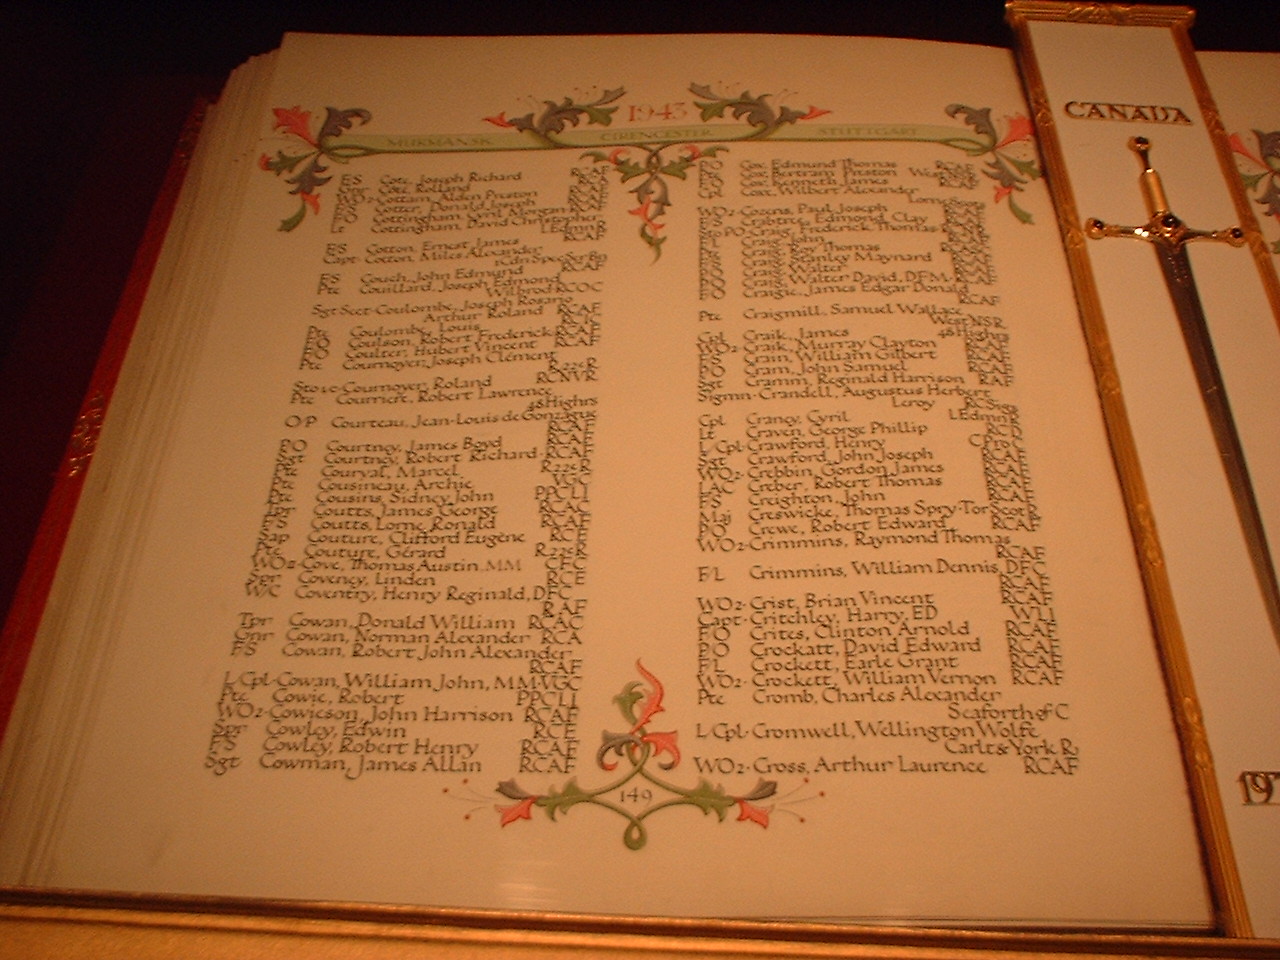 1943
MURMANSK CIRENCESTER STUTTGART
FS Cote, Joseph Richard RCAF
Gnr Côté, Rolland
WO2 Cottam, Alden Preston RCAF
FS Cotter, Donald Joseph RCAF
PO Cottingham, Cyril Morgan RCAF
Lt Cottingham, David Christopher
LEdmnR
FS Cotton, Ernest James RCAF
Capt Cotton, Miles Alexander
1CdnSpecSerBn
FS Couch, John Edmund RCAF
Pte Couillard, Joseph Edmond
Wilbrod RCOC
Sgt Sect Coulombe, Joseph Rosario
Arthur Roland RCAF
Pte Coulombe, Louis RCIC
FO Coulson, Robert Frederick RCAF
FO Coulter, Hubert Vincent RCAF
Pte Cournoyer, Joseph Clément
R22eR
Sto 1c Cournoyer, Roland RCNVR
Pte Courrier, Robert Lawrence
48Highrs
O/P Courteau, Jean-Louis de Gonzague
RCAF
PO Courtney, James Boyd RCAF
Sgt Courtney, Robert Richard RCAF
Pte Courval, Marcel R22eR
Pte Cousineau, Archie VGC
Pte Cousins, Sidney John PPCLI
Tpr Coutts, James George RCAC
FS Coutts, Lorne Ronald RCAF
Sap Couture, Clifford Eugène RCE
Pte Couture, Gérard R22eR
WO2 Cove, Thomas Austin MM CFC
Spr Coveney, Linden RCE
W/C Coventry, Henry Reginald, DFC
RAF
Tpr Cowan, Donald William RCAC
Gnr Cowan, Norman Alexander RCA
FS Cowan, Robert John Alexander
RCAF
L/Cpl Cowan, William John, MM VGC
Pte Cowie, Robert PPCLI
WO2 Cowieson, John Harrison RCAF
Spr Cowley, Edwin RCE
FS Cowley, Robert Henry RCAF
Sgt Cowman, James Allan RCAF
PO Cox, Edmund Thomas RCAF
Cox, Bertram Preston
FO Cox, Kenneth James RCAF
Cpl Coxe, Wilbert Alexander
LorneScots
WO2 Cozens, Paul Joseph RCAF
FS Crabtree, Edmond Clay RCAF
Sto PO Craig, Frederick Thomas
FL Craig, John RCAF
Craig, Roy Thomas RCASC
PO Craig, Stanley Maynard RCAF
PO Craig, Walter RCAF
PO Craig, Walter David, DFM RCAF
FO Craigie, James Edgar Donald
RCAF
Pte Craigmill, Samuel Wallace
WestNSR
Cpl Craik, James 48Highrs
WO2 Craik, Murray Clayton RCAF
FS Crain, William Gilbert RCAF
PO Cram, John Samuel RCAF
Sgt Cramm, Reginald Harrison RAF
Sigmn Crandell, Augustus Herbert
Leroy RCSigs
Cpl Craney, Cyril LEdmnR
Lt Craven, George Phillip RCR
L/Cpl Crawford, Henry CProC
Sgt Crawford, John Joseph RCAF
WO2 Crebbin, Gordon James RCAF
LAC Creber, Robert Thomas RCAF
FS Creighton, John RCAF
Maj Creswicke, Thomas Spry TorScotR
PO Crewe, Robert Edward RCAF
WO2 Crimmins, Raymond Thomas
RCAF
F/L Crimmins, William Dennis, DFC
RCAF
WO2 Crist, Brian Vincent RCAF
Capt Critchley, Harry, ED WLI
FO Crites, Clinton Arnold RCAF
PO Crockatt, David Edward RCAF
FL Crockett, Earle Grant RCAF
WO2 Crockett, William Vernon RCAF
Pte Cromb, Charles Alexander
Seaforth of C
L/Cpl Cromwell, Wellington Wolfe
Carlt & York R
WO2 Cross, Arthur Laurence RCAF
149
CANADA